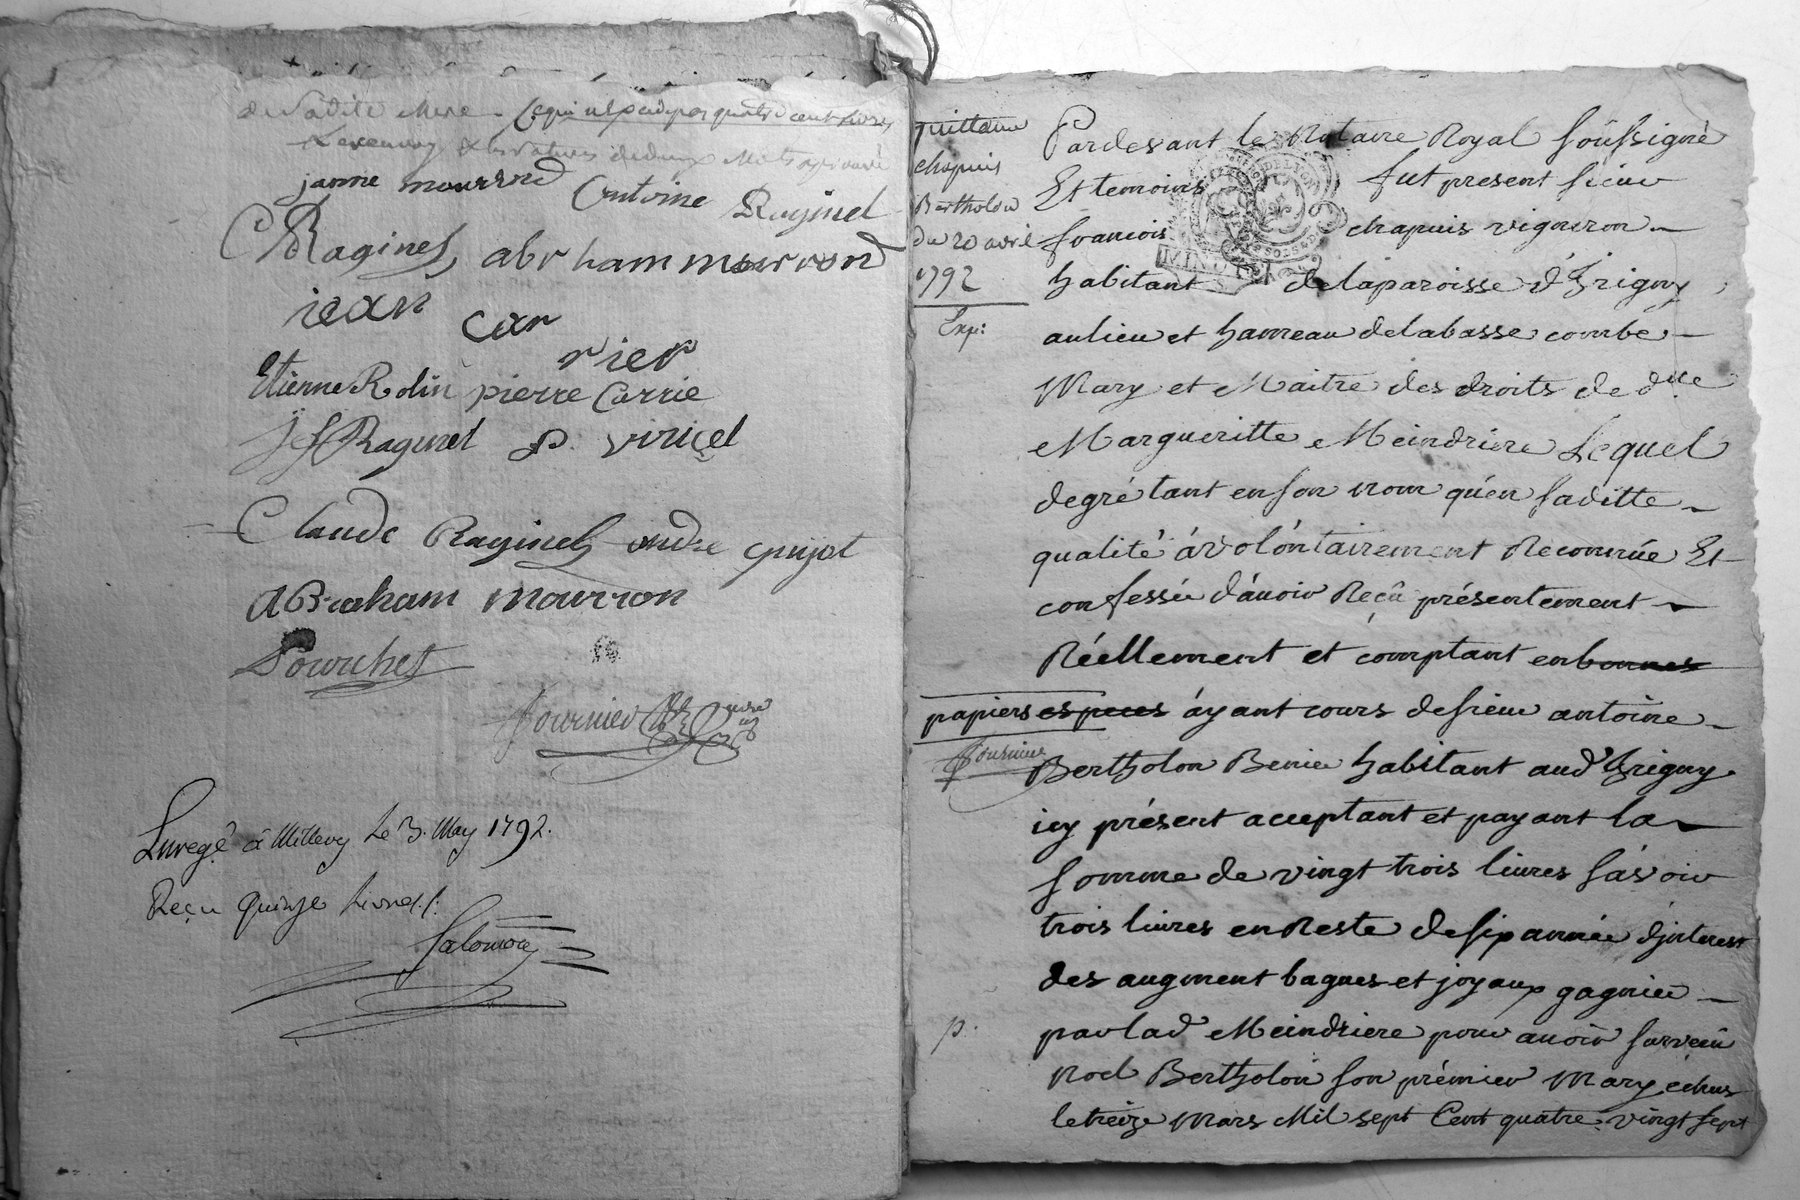 de Sadite Mere
janne mourrond Antoine Raginel
C Raginel, abraham mourrond
iean car
rier
Etienne Rolin pierre Carrie
Jph Raginel P. viricel
Claude Raginel andre gujot
ABraham mourron
Pourchet
fournier
Enregé à Millery Le 3. May 1792.
Reçu quinze Livres./.
Salomon
quittance
chapuis
Bertholon
du 20 avril
1792
Exp:
Pardevant le Notaire Royal soûssigné
Et temoins fut present sieur
francois chapuis vigneron
MINUTE
habitant delaparoisse d'Irigny,
aulieu et hameau delabasse combe
Mary et Maitre des droits de dlle
Margueritte Meindriere Lequel
degré tant enson nom qu'en saditte
qualité á volóntairement Reconnüe Et
confessée d'áuoir Reçû présentement
Réellement et comptant enbonnes
papiers especes áyant cours desieur antoine
fournier
Bertholon Benier habitant aud'Irigny
icy présent acceptant et payant la
somme de vingt trois livres sávoir
trois livres en Reste desix année d'jnterest
des augment bagues et joyaux gagniée
p.
par lad' Meindriere pour auoir survecû
Noel Bertholon son prémier Mary echus
le treize Mars Mil sept Cent quatre vingt sept